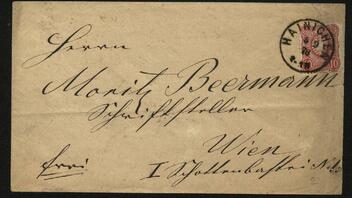 Herrn
Moritz Beermann
Schriftsteller
Wien
frei
I Schottenbastei
HAINICHEN
10